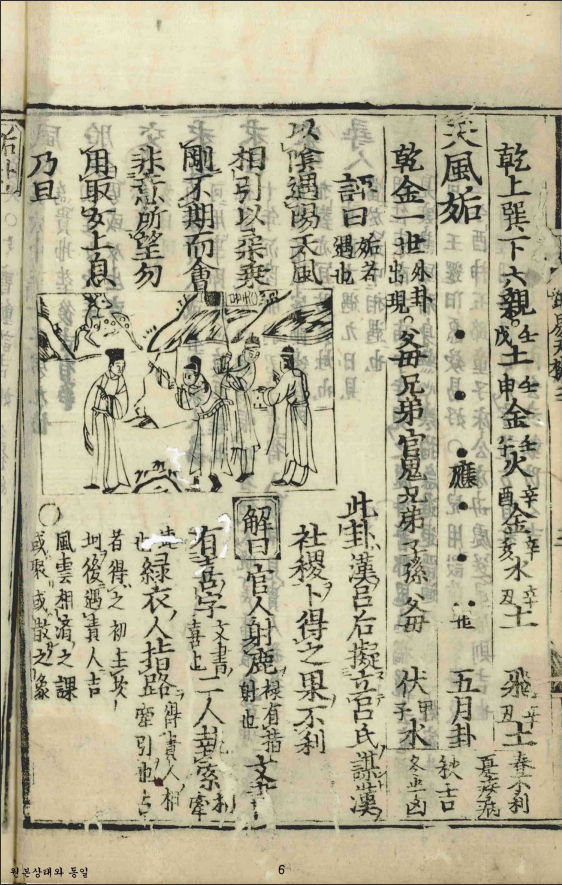 乾上巽下六親。壬戌土壬申金壬午火辛酉金辛亥水辛丑土 飛辛丑土 春不利 夏疾病
天風姤 應 世 五月卦 秋吉 冬凶
乾金一世外卦出現。父母兄弟官鬼兄弟子孫父母 伏甲子水
評曰姤者遇也
以陰遇陽天風
相引以柔乘
剛不期而會
非意所望勿
用取女上息
乃且
卬州
此卦漢呂后擬立官氏謀漢
社稷卜得之果不利
解曰官人射鹿祿有指射也文書
有喜字文書喜上二人
綠衣人指路得貴人相牽引也吉
○者得之初主
後遇貴人吉
風雲相濟之課
或聚或散之象
원본상태와 동일
6